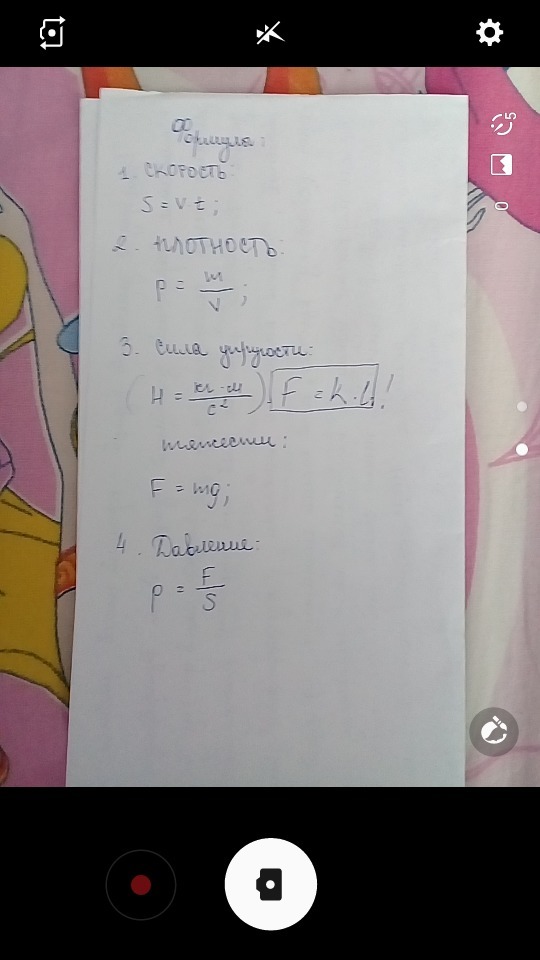 Формула:
1. СКОРОСТЬ:
S = v t;
2. ПЛОТНОСТЬ:
p = m/V;
3. Сила упругости:
(H = кг·м/с²) F = k·l!
тяжести:
F = mg;
4. Давление:
p = F/S
5
0